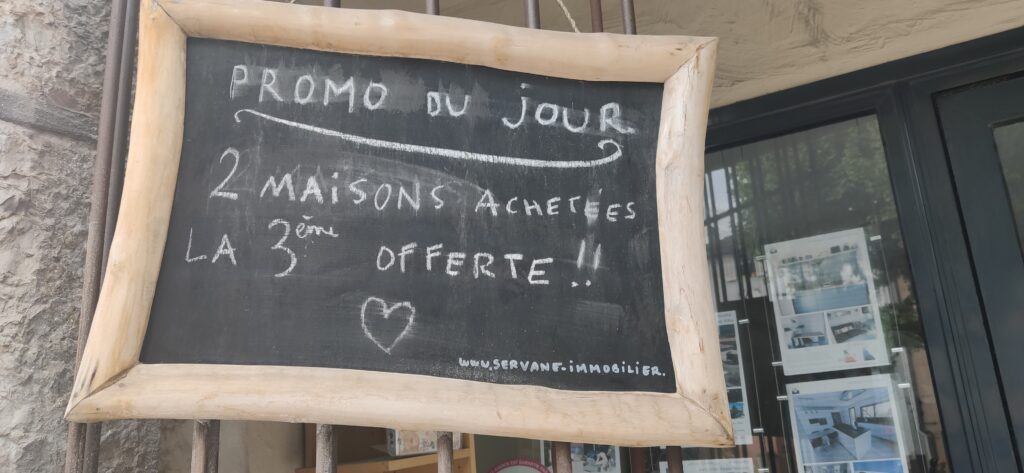 PROMO DU JOUR
2 MAiSONS ACHETÉES
LA 3ème OFFERTE !!
www.SERVANE-iMMOBiLiER.